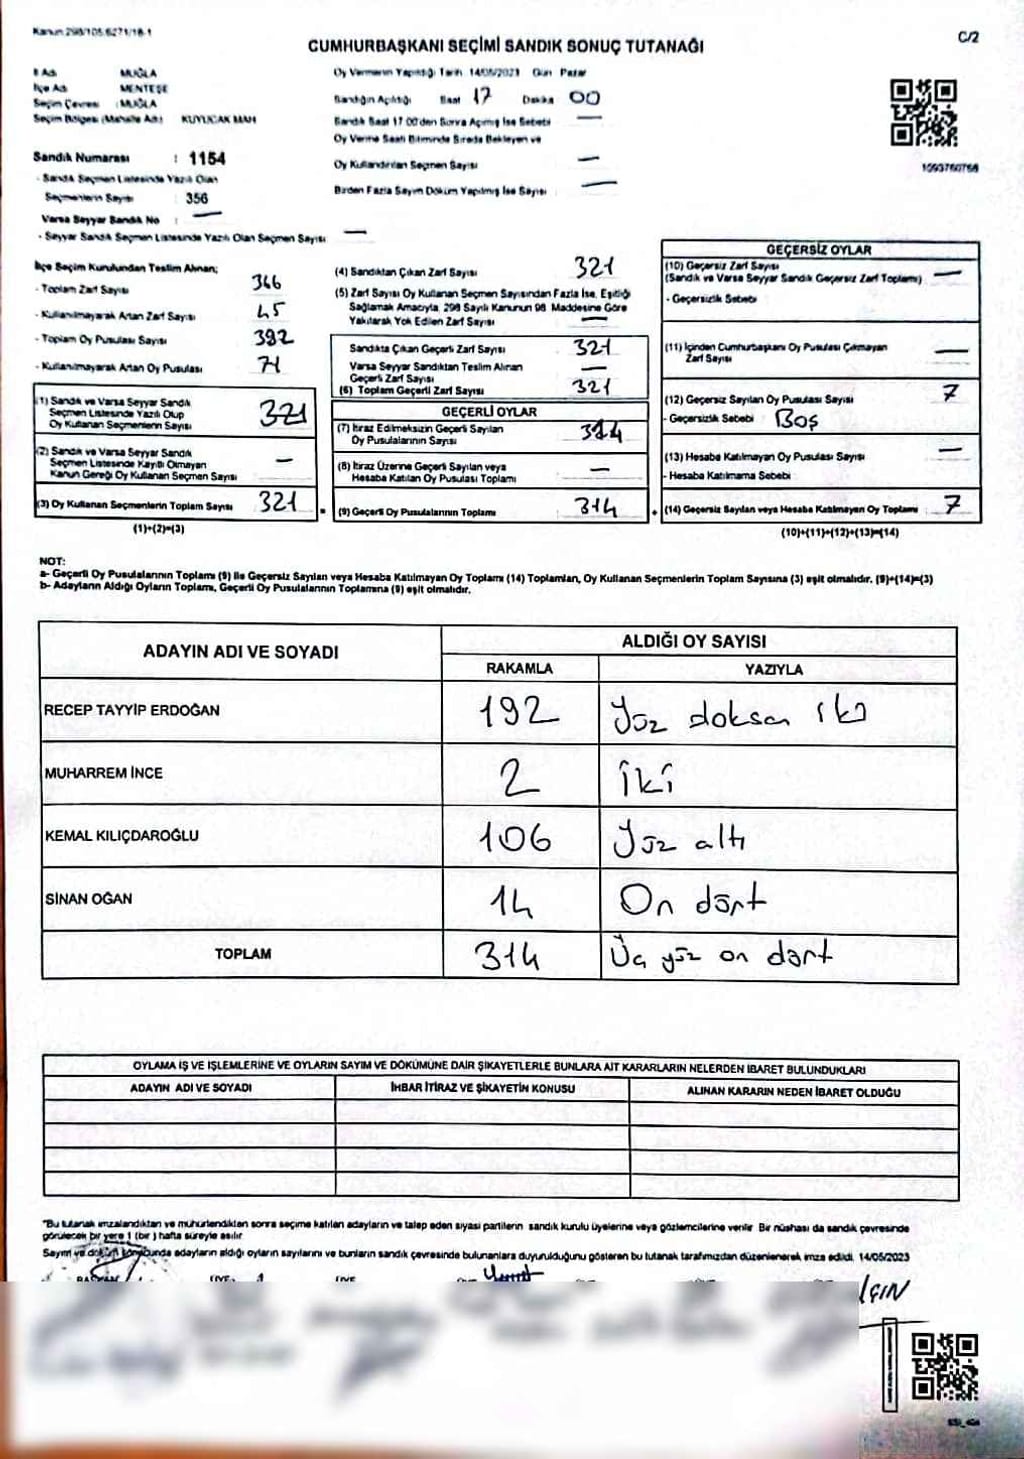 Kanun:298/105.6271/18-1
C/2
CUMHURBAŞKANI SEÇİMİ SANDIK SONUÇ TUTANAĞI
İl Adı MUĞLA
İlçe Adı MENTEŞE
Seçim Çevresi : MUĞLA
Seçim Bölgesi (Mahalle Adı) KUYUCAK MAH
Sandık Numarası : 1154
- Sandık Seçmen Listesinde Yazılı Olan
Seçmenlerin Sayısı 356
Varsa Seyyar Sandık No : —
- Seyyar Sandık Seçmen Listesinde Yazılı Olan Seçmen Sayısı —
Oy Vermenin Yapıldığı Tarih 14/05/2023 Gün Pazar
Sandığın Açıldığı Saat 17 Dakika 00
Sandık Saat 17.00'den Sonra Açılmış İse Sebebi —
Oy Verme Saati Bitiminde Sırada Bekleyen ve
Oy Kullandırılan Seçmen Sayısı —
Birden Fazla Sayım Döküm Yapılmış İse Sayısı —
1093760768
İlçe Seçim Kurulundan Teslim Alınan;
- Toplam Zarf Sayısı 366
- Kullanılmayarak Artan Zarf Sayısı 45
- Toplam Oy Pusulası Sayısı 392
- Kullanılmayarak Artan Oy Pusulası 71
(1) Sandık ve Varsa Seyyar Sandık
Seçmen Listesinde Yazılı Olup
Oy Kullanan Seçmenlerin Sayısı 321
(2) Sandık ve Varsa Seyyar Sandık
Seçmen Listesinde Kayıtlı Olmayan
Kanun Gereği Oy Kullanan Seçmen Sayısı —
(3) Oy Kullanan Seçmenlerin Toplam Sayısı 321
(1)+(2)=(3)
(4) Sandıktan Çıkan Zarf Sayısı 321
(5) Zarf Sayısı Oy Kullanan Seçmen Sayısından Fazla İse, Eşitliği
Sağlamak Amacıyla, 298 Sayılı Kanunun 98. Maddesine Göre
Yakılarak Yok Edilen Zarf Sayısı —
Sandıkta Çıkan Geçerli Zarf Sayısı 321
Varsa Seyyar Sandıktan Teslim Alınan
Geçerli Zarf Sayısı —
(6) Toplam Geçerli Zarf Sayısı 321
GEÇERLİ OYLAR
(7) İtiraz Edilmeksizin Geçerli Sayılan
Oy Pusulalarının Sayısı 314
(8) İtiraz Üzerine Geçerli Sayılan veya
Hesaba Katılan Oy Pusulası Toplamı —
(9) Geçerli Oy Pusulalarının Toplamı 314
GEÇERSİZ OYLAR
(10) Geçersiz Zarf Sayısı
(Sandık ve Varsa Seyyar Sandık Geçersiz Zarf Toplamı) —
- Geçersizlik Sebebi
(11) İçinden Cumhurbaşkanı Oy Pusulası Çıkmayan
Zarf Sayısı —
(12) Geçersiz Sayılan Oy Pusulası Sayısı 7
- Geçersizlik Sebebi Boş
(13) Hesaba Katılmayan Oy Pusulası Sayısı —
- Hesaba Katılmama Sebebi
(14) Geçersiz Sayılan veya Hesaba Katılmayan Oy Toplamı 7
(10)+(11)+(12)+(13)=(14)
NOT:
a- Geçerli Oy Pusulalarının Toplamı (9) ile Geçersiz Sayılan veya Hesaba Katılmayan Oy Toplamı (14) Toplamları, Oy Kullanan Seçmenlerin Toplam Sayısına (3) eşit olmalıdır. (9)+(14)=(3)
b- Adayların Aldığı Oyların Toplamı, Geçerli Oy Pusulalarının Toplamına (9) eşit olmalıdır.
ADAYIN ADI VE SOYADI ALDIĞI OY SAYISI
RAKAMLA YAZIYLA
RECEP TAYYİP ERDOĞAN 192 Yüz doksan iki
MUHARREM İNCE 2 İki
KEMAL KILIÇDAROĞLU 106 Yüz altı
SİNAN OĞAN 14 On dört
TOPLAM 314 Üç yüz on dört
OYLAMA İŞ VE İŞLEMLERİNE VE OYLARIN SAYIM VE DÖKÜMÜNE DAİR ŞİKAYETLERLE BUNLARA AİT KARARLARIN NELERDEN İBARET BULUNDUKLARI
ADAYIN ADI VE SOYADI İHBAR İTİRAZ VE ŞİKAYETİN KONUSU ALINAN KARARIN NEDEN İBARET OLDUĞU
"Bu tutanak imzalandıktan ve mühürlendikten sonra seçime katılan adayların ve talep eden siyasi partilerin sandık kurulu üyelerine veya gözlemcilerine verilir. Bir nüshası da sandık çevresinde
görülecek bir yere 1 (bir) hafta süreyle asılır.
Sayım ve döküm sonunda adayların aldığı oyların sayılarını ve bunların sandık çevresinde bulunanlara duyurulduğunu gösteren bu tutanak tarafımızdan düzenlenerek imza edildi. 14/05/2023
BAŞKAN ÜYE ÜYE